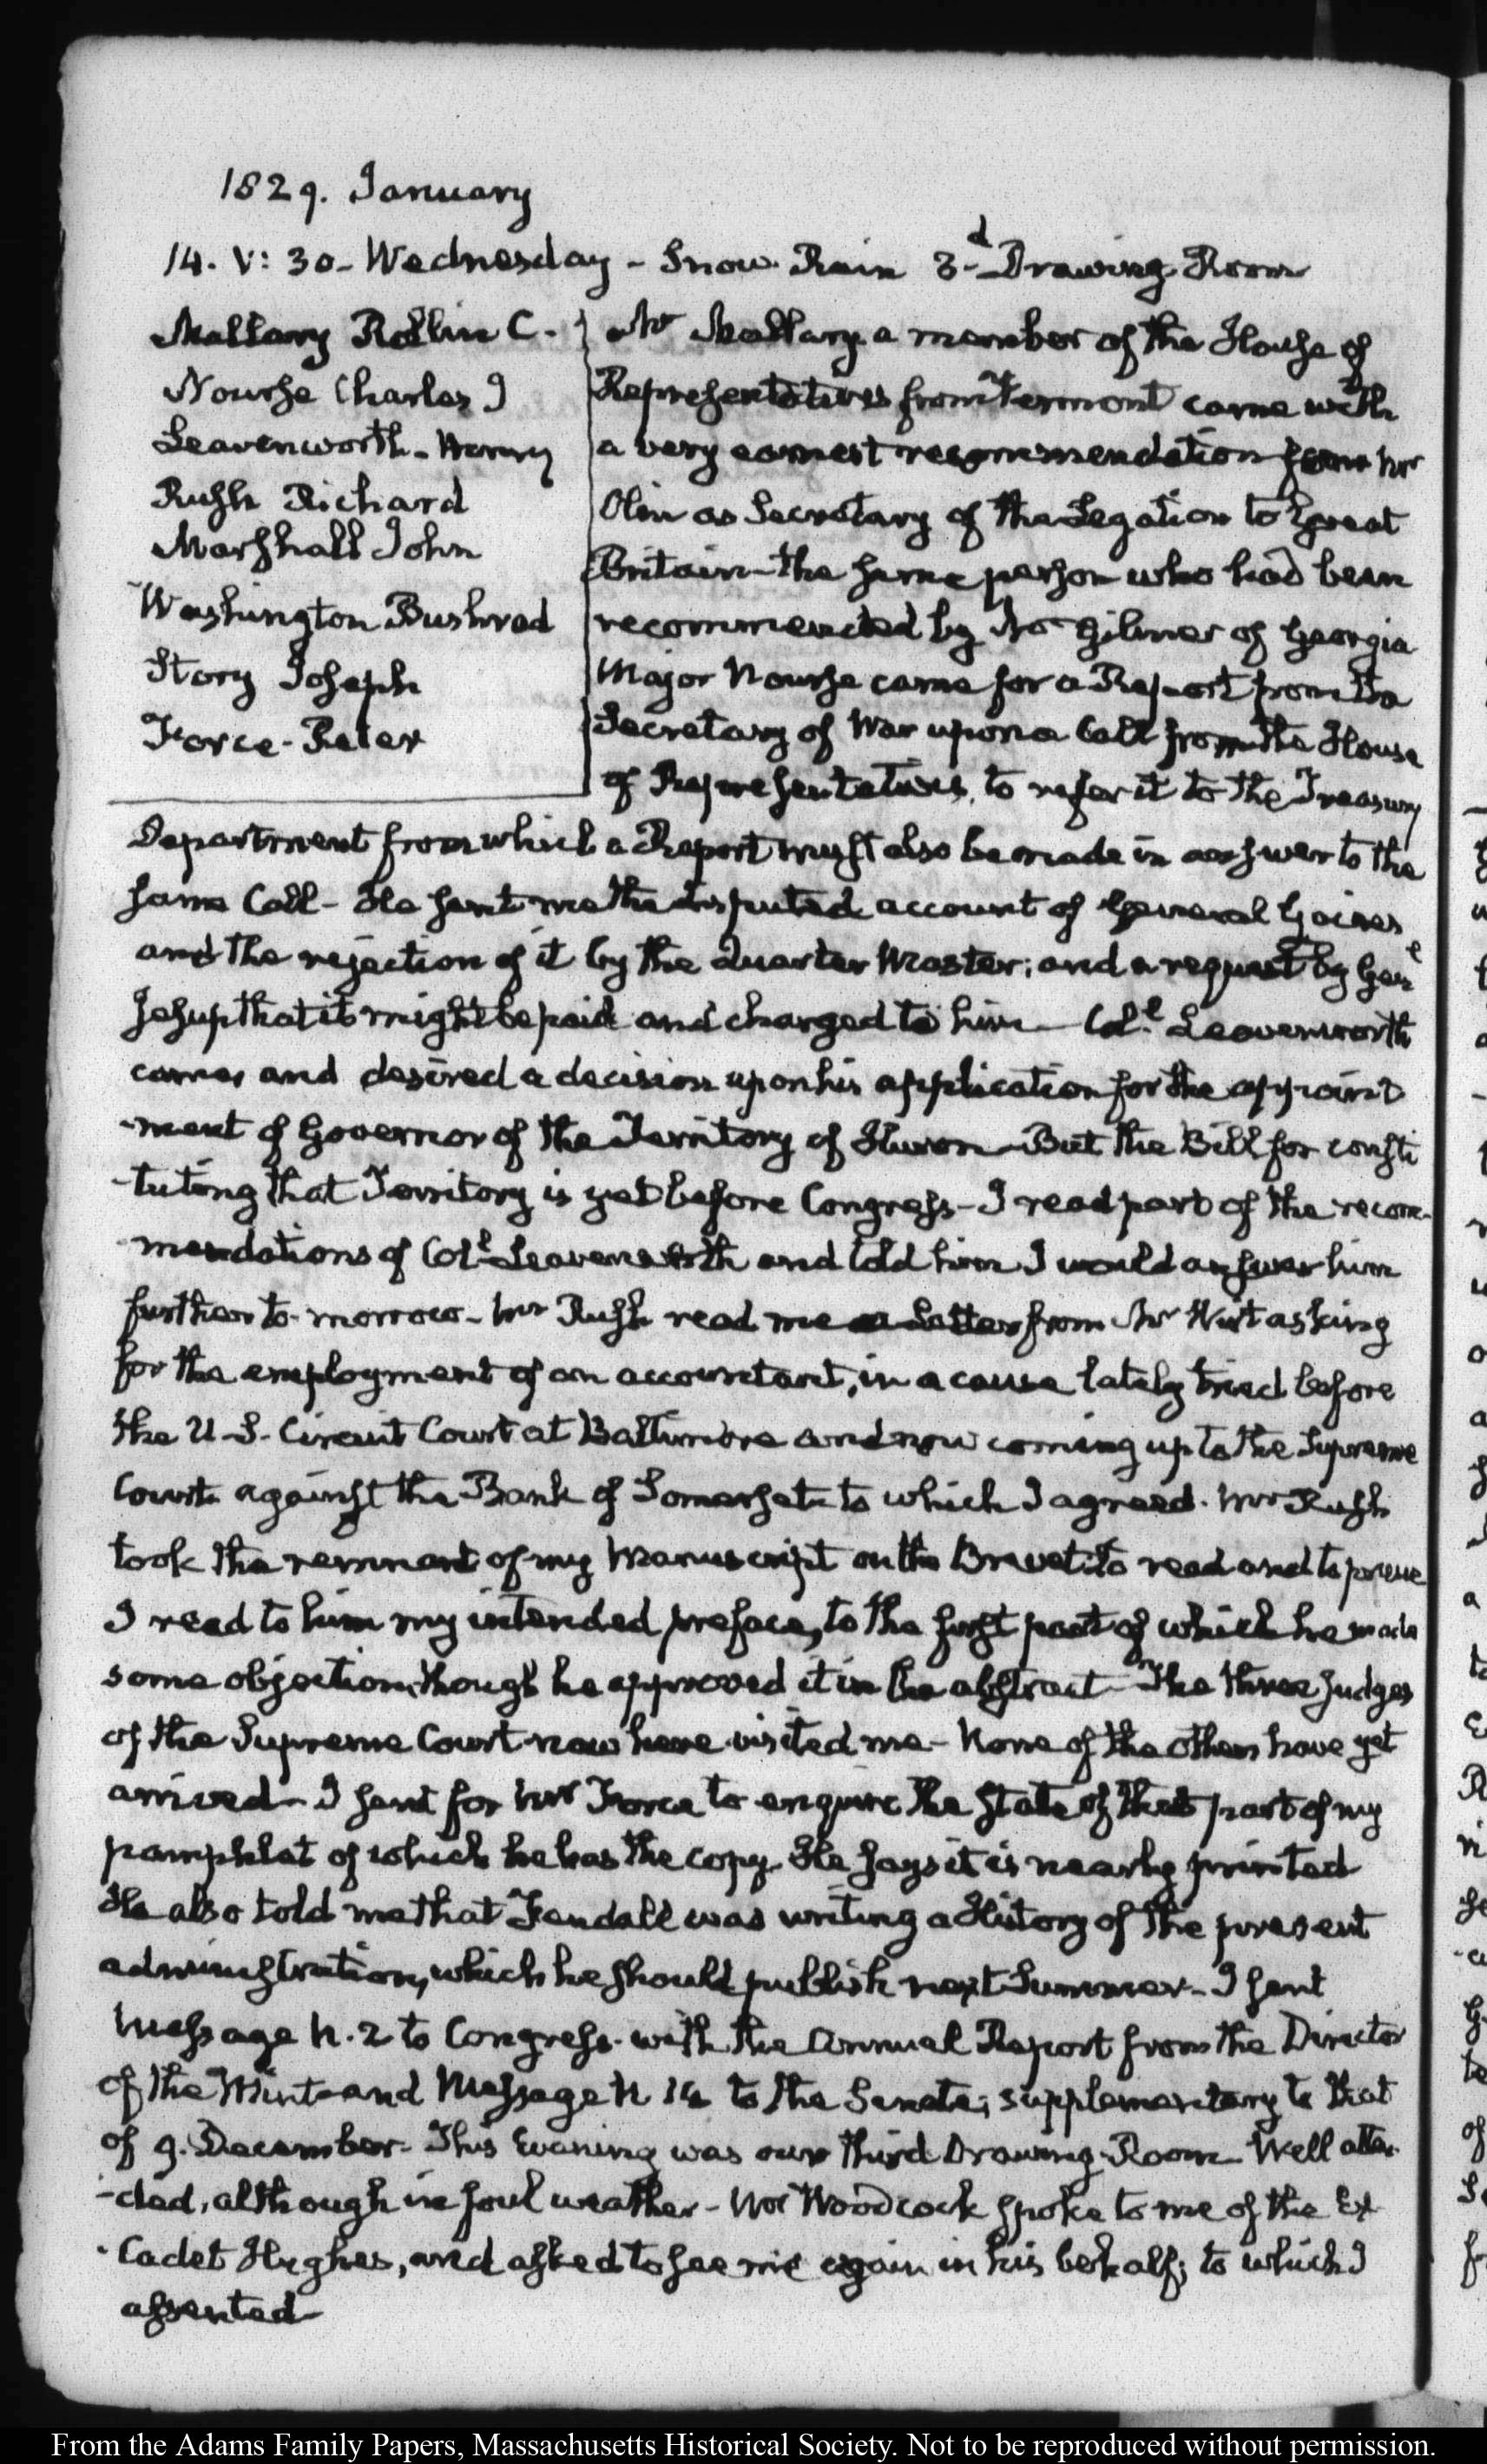 1829. January
14. V: 30 - Wednesday - Snow. Rain 3.d Drawing Room
Mallary Rollin C.
Nourse Charles J
Leavenworth - Henry
Rush Richard
Marshall John
Washington Bushrod
Story Joseph
Force - Peter
Mr Mallary a member of the House of
Representatives from Vermont came with
a very earnest recommendation from Mr
Olin as Secretary of the Legation to Great
Britain - the same person who had been
recommended by Mr Gilmer of Georgia
Major Nourse came for a Report from the
Secretary of War upon a Call from the House
of Representatives, to refer it to the Treasury
Department from which a Report must also be made in answer to the
same Call - He sent me the disputed account of General Gaines
and the rejection of it by the Quarter Master; and a request by Genl
Jesup that it might be paid and charged to him - Coll Leavenworth
came, and desired a decision upon his application for the appoint
-ment of Governor of the Territory of Huron - But the Bill for consti
-tuting that Territory is yet before Congress - I read part of the recom-
mendations of Coll Leavenworth and told him I would answer him
further to-morrow - Mr Rush read me a Letter from Mr Wirt asking
for the employment of an accountant, in a cause lately tried before
the U.S. Circuit Court at Baltimore and now coming up to the Supreme
Court against the Bank of Somerset - to which I agreed. Mr Rush
took the remnant of my Manuscript on the Brevets to read and to
I read to him my intended preface, to the first part of which he made
some objection, though he approved it in the abstract - The three Judges
of the Supreme Court now here visited me - None of the others have yet
arrived - I sent for Mr Force to enquire the state of that part of my
pamphlet of which he has the copy. He says it is nearly printed
He also told me that Kendall was writing a History of the present
administration, which he should publish next Summer - I sent
Message N. 2 to Congress with the Annual Report from the Director
of the Mint - and Message N 14 to the Senate; supplementary to that
of 9. December - This Evening was our third Drawing Room Well atten
-ded, although in foul weather - Mr Woodcock spoke to me of the Ex
-Cadet Hughes, and asked to see me again in his behalf; to which I
assented -
From the Adams Family Papers, Massachusetts Historical Society. Not to be reproduced without permission.